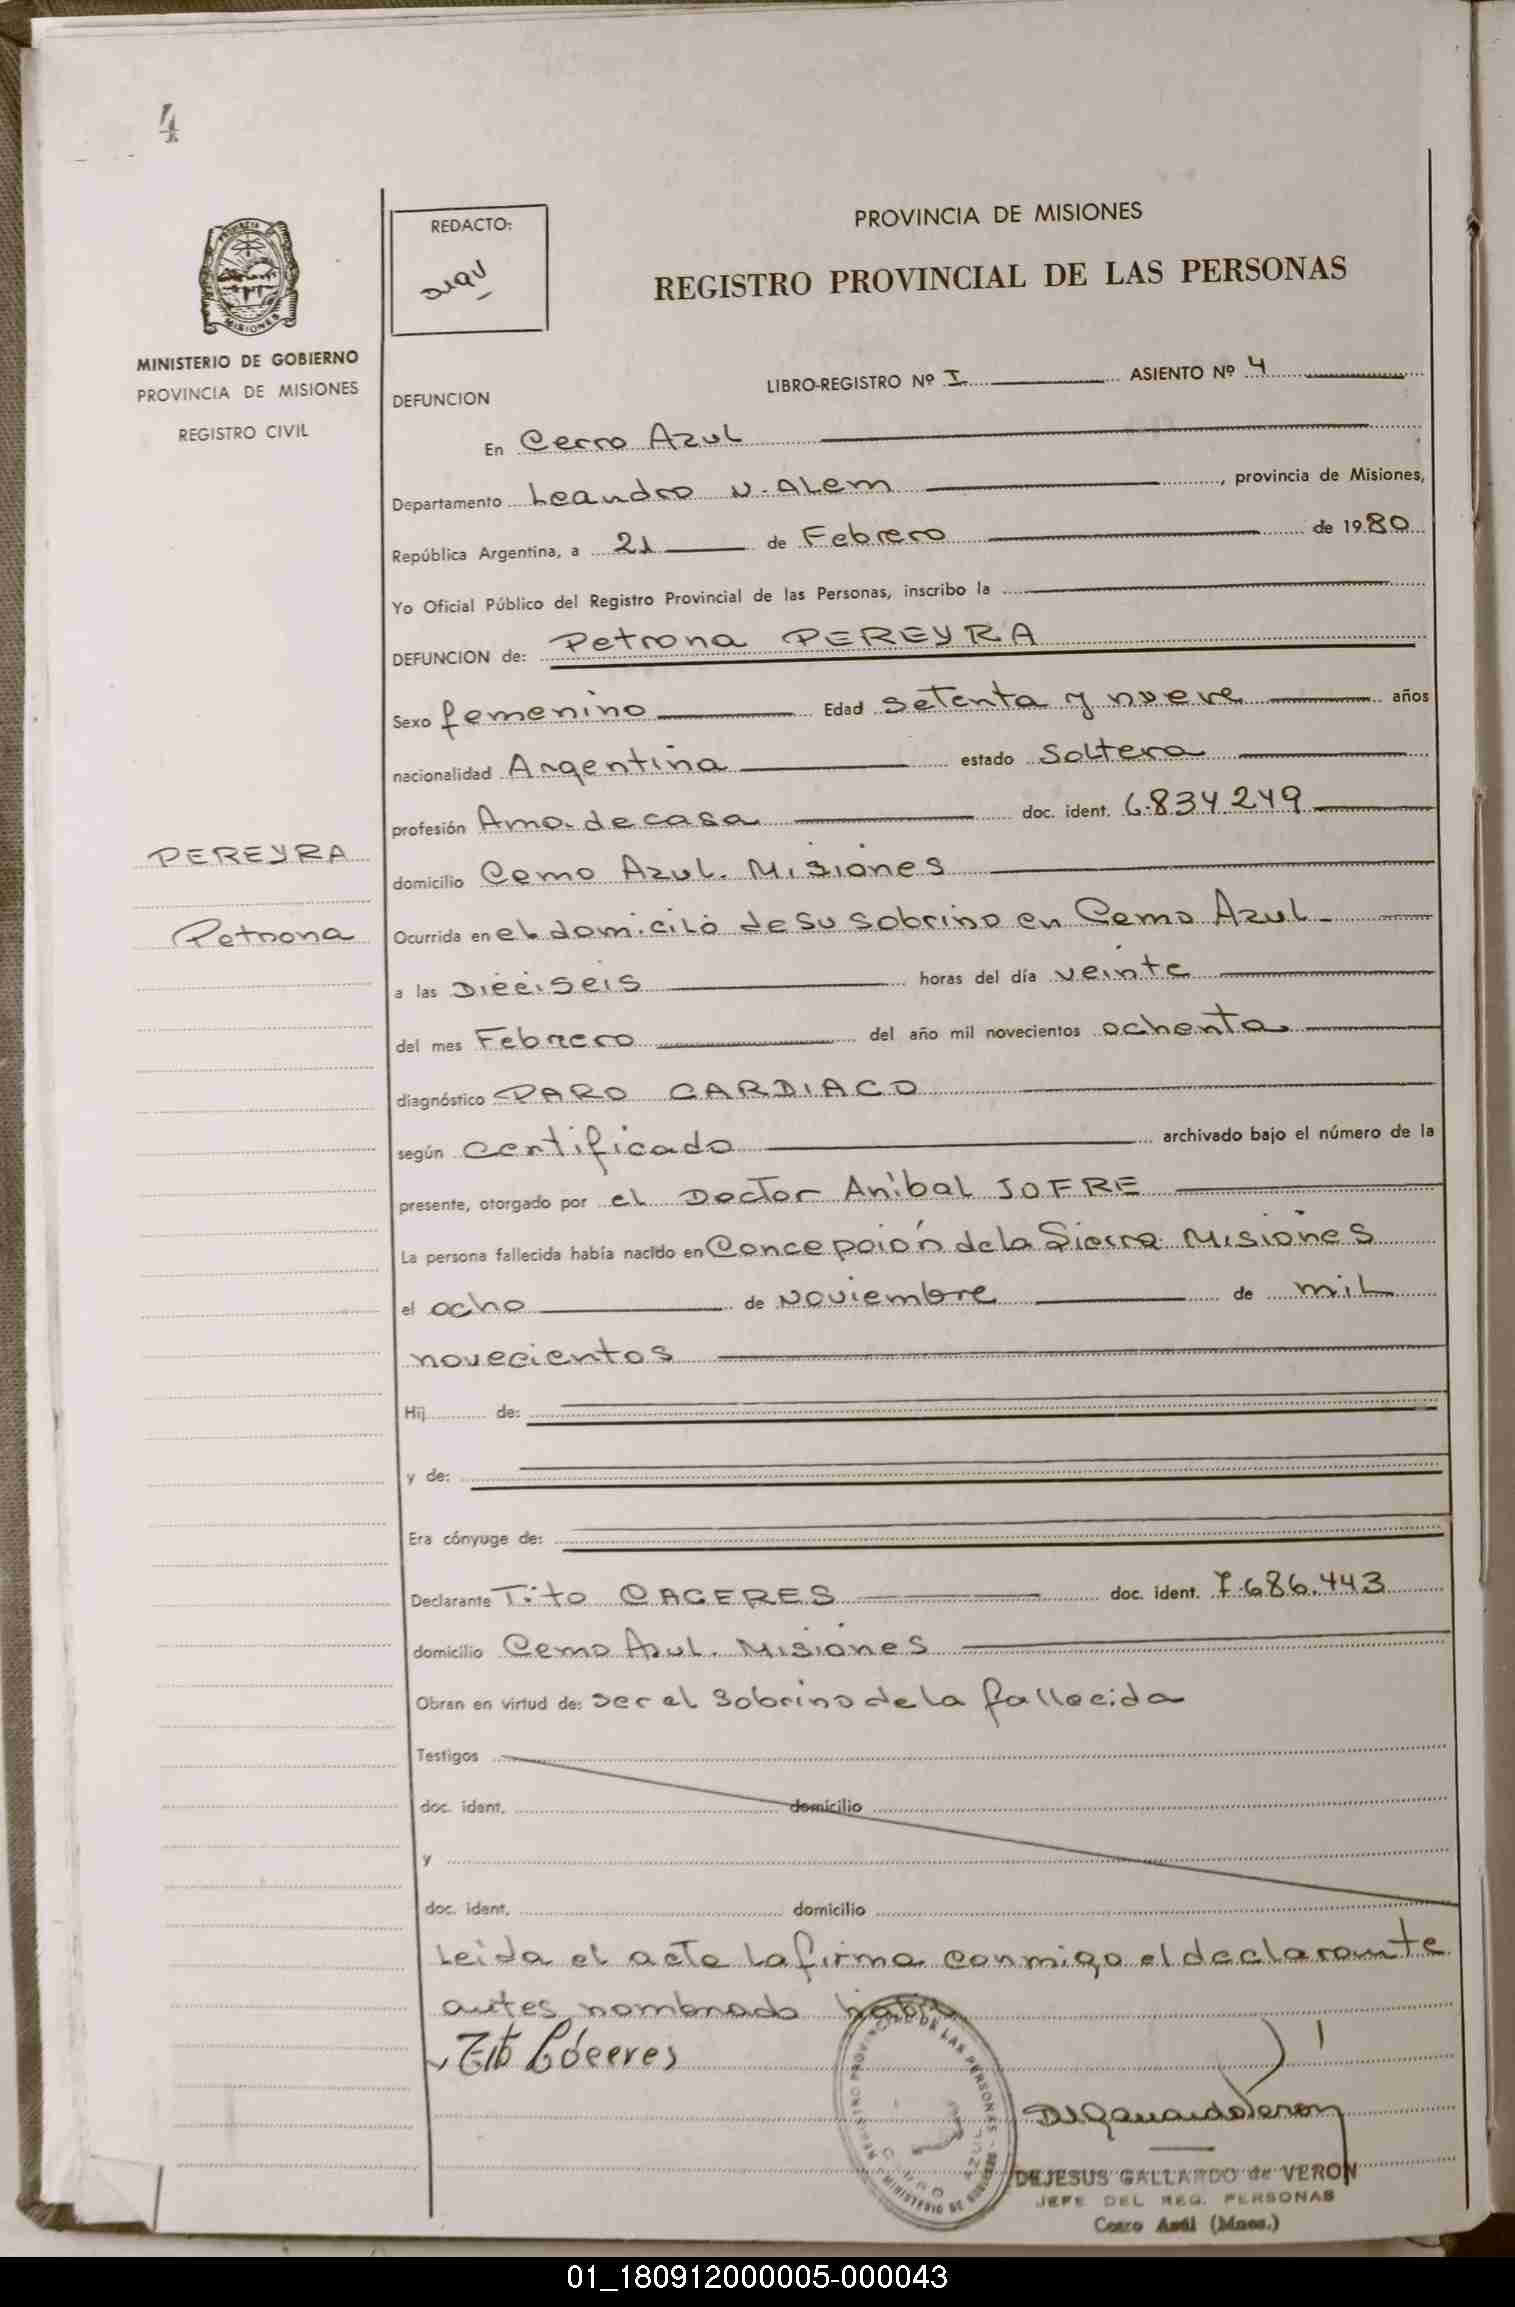 4
REDACTO:
PROVINCIA DE MISIONES
REGISTRO PROVINCIAL DE LAS PERSONAS
MINISTERIO DE GOBIERNO
PROVINCIA DE MISIONES
REGISTRO CIVIL
LIBRO-REGISTRO Nº I ASIENTO Nº 4
DEFUNCION
En Cerro Azul
Departamento Leandro N. Alem, provincia de Misiones,
República Argentina, a 21 de Febrero de 1980
Yo Oficial Público del Registro Provincial de las Personas, inscribo la
DEFUNCION de: Petrona PEREYRA
Sexo femenino Edad setenta y nueve años
nacionalidad Argentina estado soltera
profesión Ama de casa doc. ident. 6.834.249
PEREYRA
domicilio Cerro Azul. Misiones
Petrona
Ocurrida en el domicilo de su sobrino en Cerro Azul
a las Dieeiseis horas del día veinte
del mes Febrero del año mil novecientos ochenta
diagnóstico PARO CARDIACO
según certificado archivado bajo el número de la
presente, otorgado por el Doctor Anibal JOFRE
La persona fallecida había nacido en Concepción de la Sierra Misiones
el ocho de Noviembre de mil
novecientos
Hij de:
y de:
Era cónyuge de:
Declarante Tito CACERES doc. ident. 7.686.443
domicilio Cerro Azul. Misiones
Obran en virtud de: ser el sobrino de la fallecida
Testigos
doc. ident. domicilio
y
doc. ident. domicilio
Leida el acta la firma conmigo el declarante
antes nombrado
Tito Cáceres
DEJESUS GALLARDO de VERON
JEFE DEL REG. PERSONAS
Cerro Azúl (Mnes.)
01_180912000005-000043